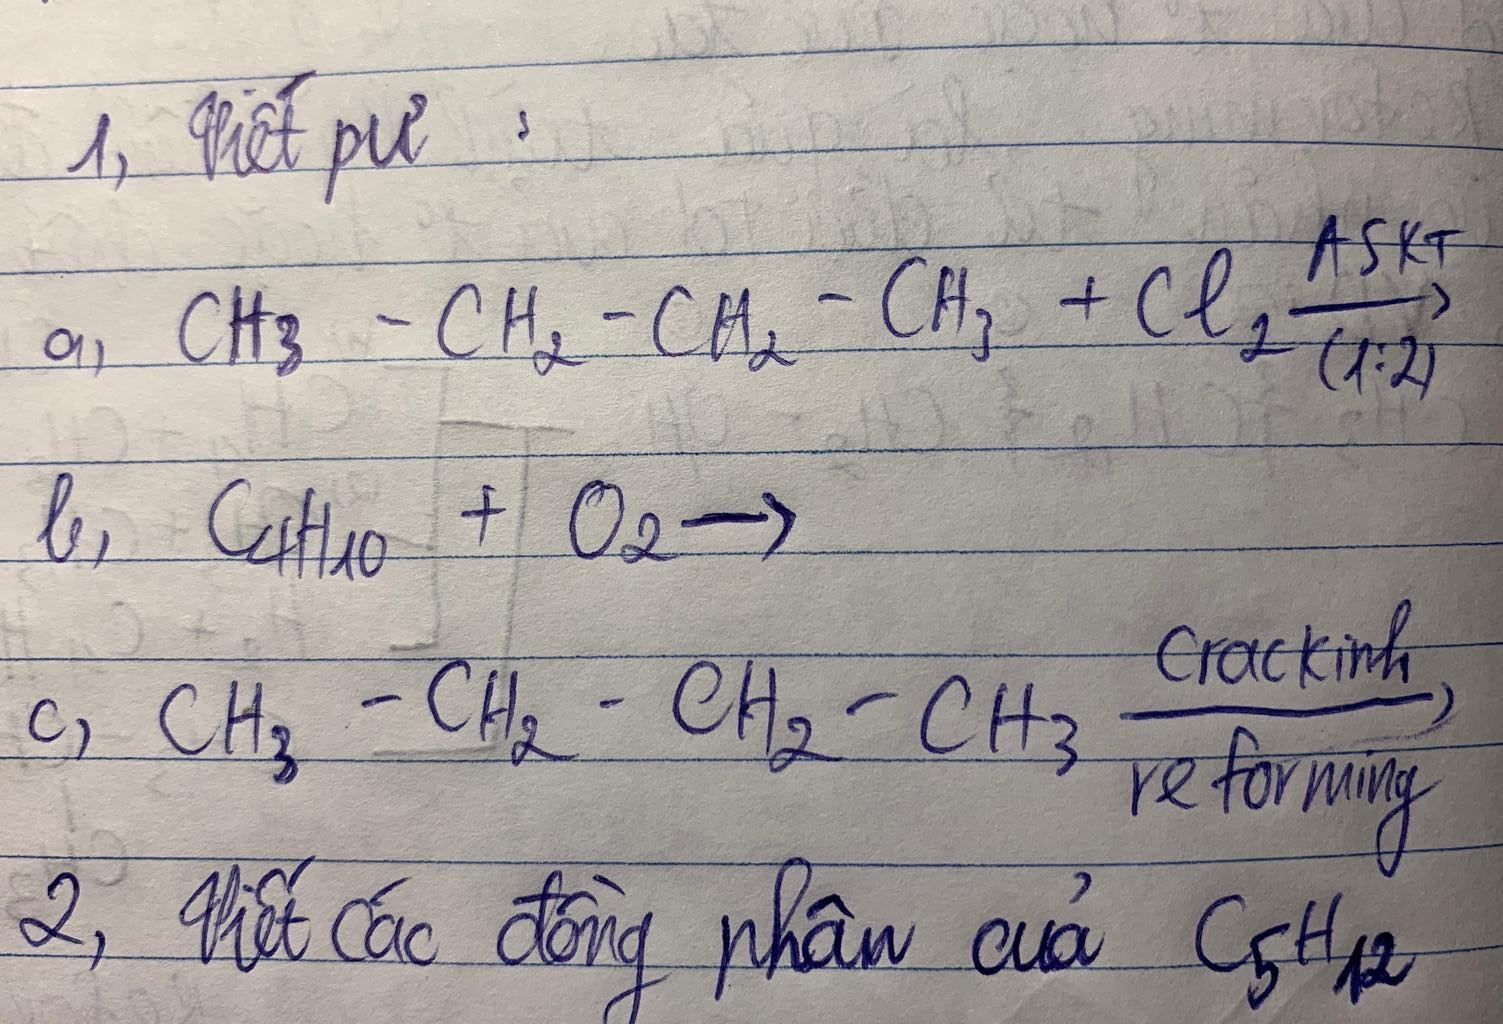 1, Viết pư :
a, CH3 - CH2 - CH2 - CH3 + Cl2 ASKT (1:2)
b, C4H10 + O2 →
c, CH3 - CH2 - CH2 - CH3 Crackinh reforming
2, Viết các đồng phân của C5H12